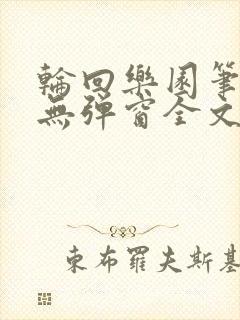 輪回樂園筆
無彈窗全文
東布羅夫斯基